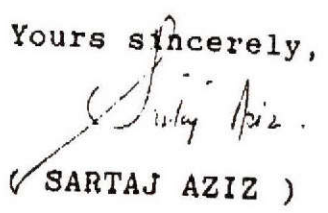 Yours sincerely,
Sartaj Aziz.
( SARTAJ AZIZ )